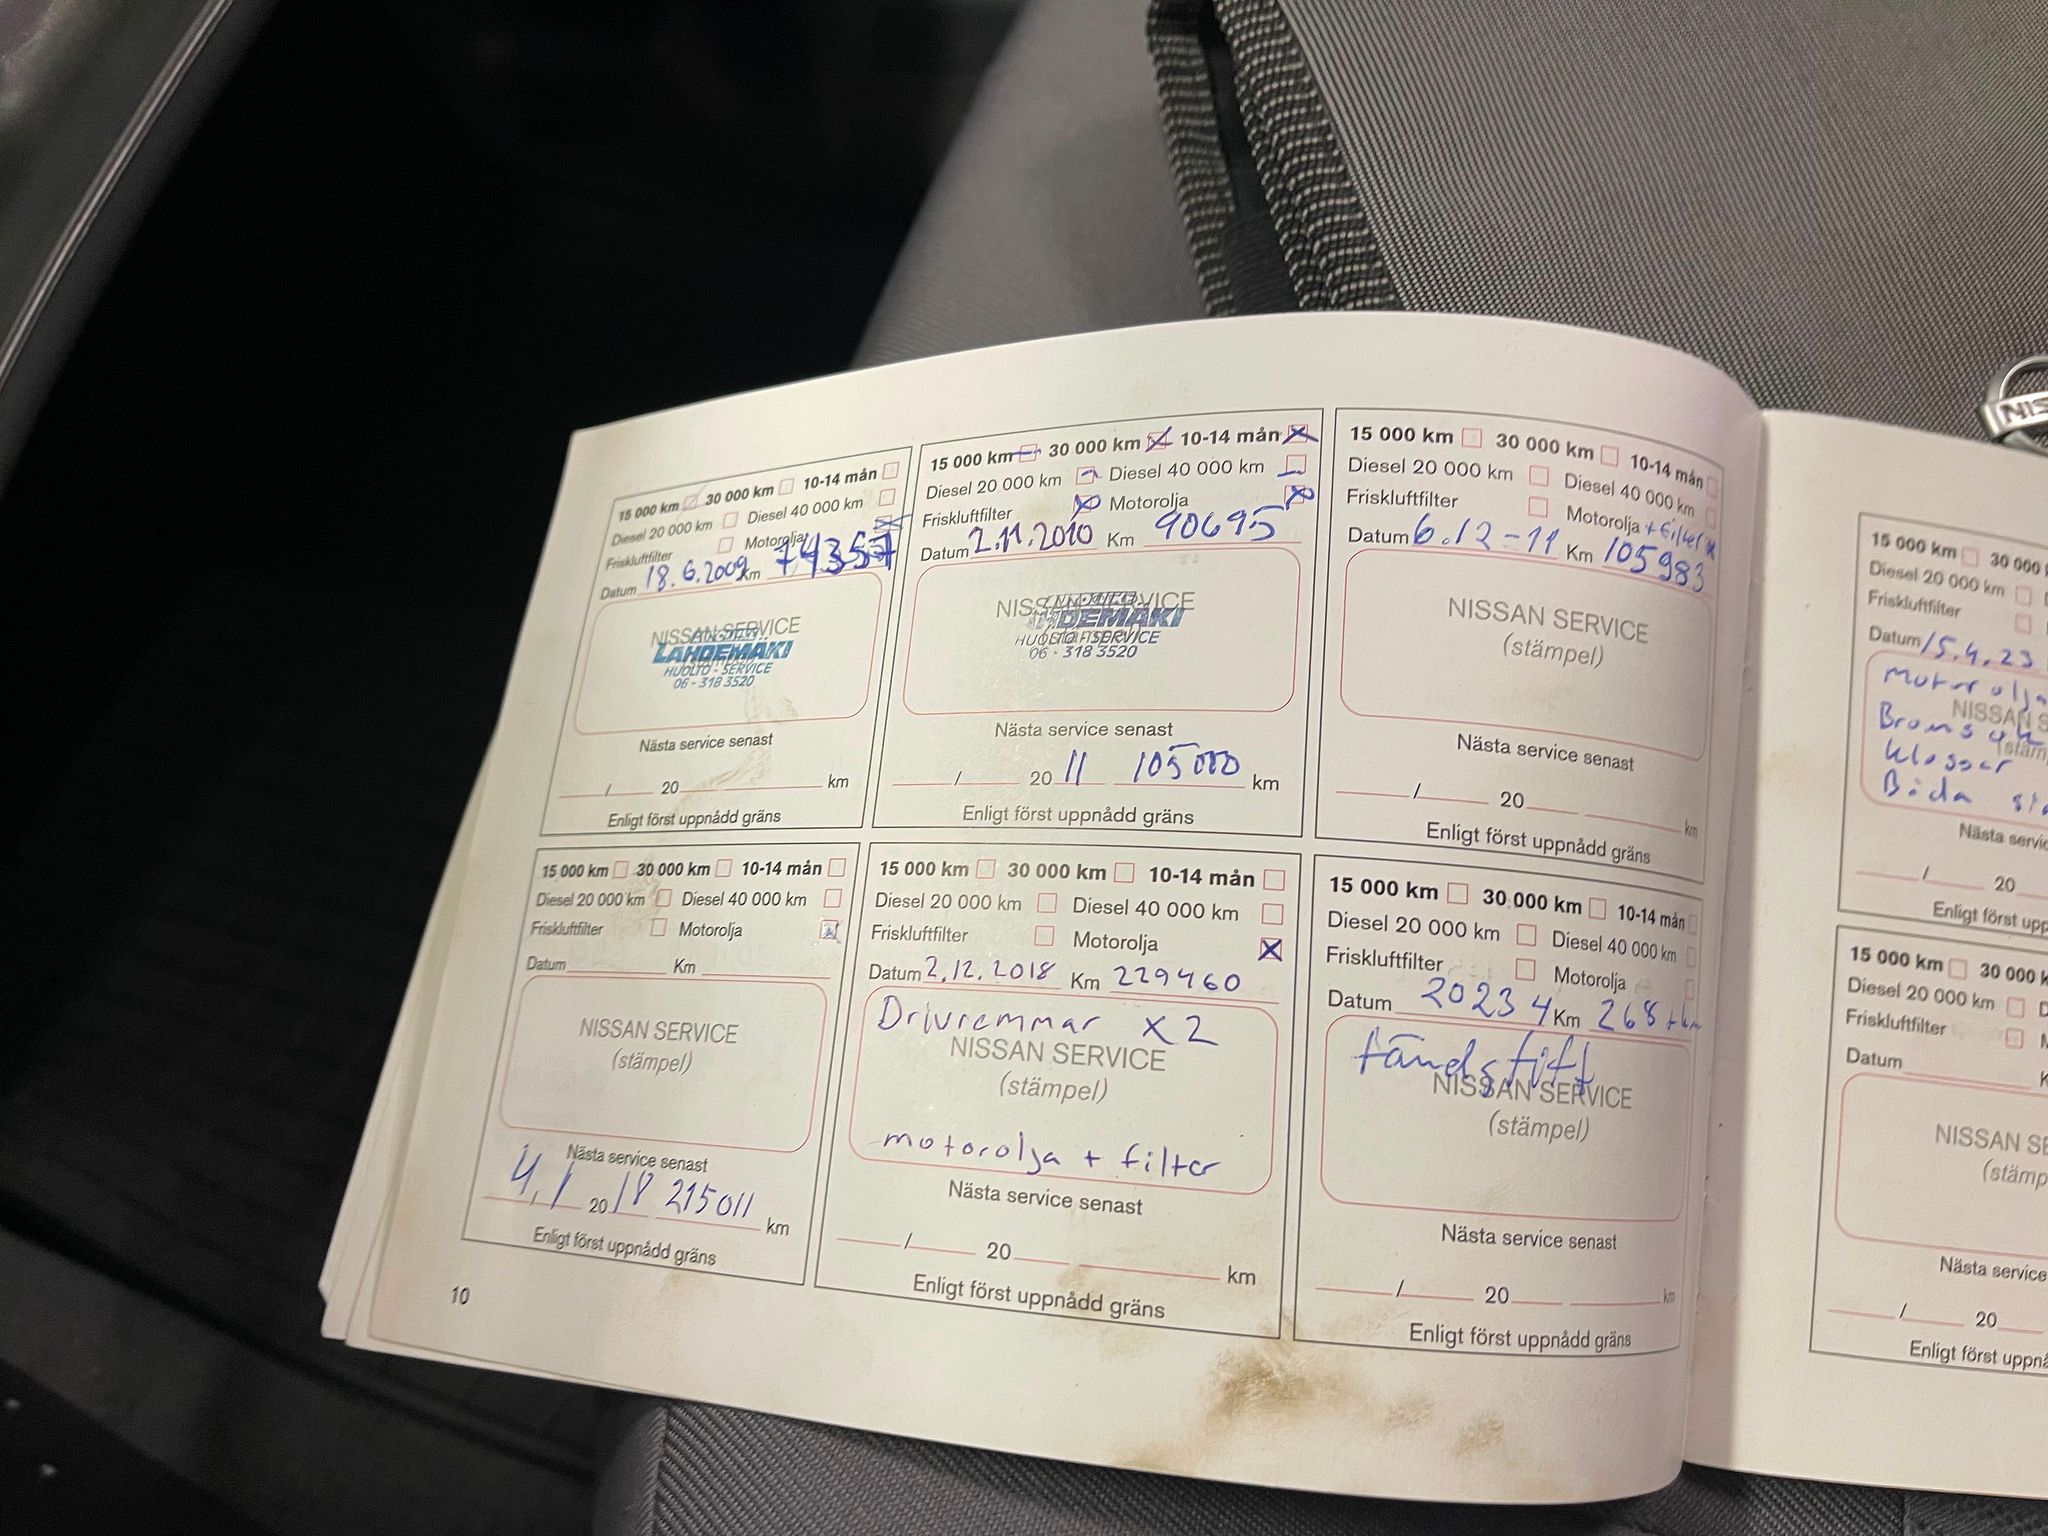 15 000 km 30 000 km 10-14 mån
Diesel 20 000 km Diesel 40 000 km
Friskluftfilter Motorolja
Datum 18.6.2009 Km 74357
NISSAN SERVICE
LAHDEMÄKI
HUOLTO - SERVICE
06 - 318 3520
Nästa service senast
/ 20 km
Enligt först uppnådd gräns
15 000 km 30 000 km 10-14 mån
Diesel 20 000 km Diesel 40 000 km
Friskluftfilter Motorolja
Datum 2.11.2010 Km 90695
NISSAN SERVICE
HDEMÄKI
HUOLTO - SERVICE
06 - 318 3520
Nästa service senast
/ 20 11 105000 km
Enligt först uppnådd gräns
15 000 km 30 000 km 10-14 mån
Diesel 20 000 km Diesel 40 000 km
Friskluftfilter Motorolja
Datum 6.12-11 Km 105983
NISSAN SERVICE
(stämpel)
Nästa service senast
/ 20 km
Enligt först uppnådd gräns
15 000 km 30 000 km 10-14 mån
Diesel 20 000 km Diesel 40 000 km
Friskluftfilter Motorolja
Datum Km
NISSAN SERVICE
(stämpel)
Nästa service senast
4.1 20 18 215011 km
Enligt först uppnådd gräns
15 000 km 30 000 km 10-14 mån
Diesel 20 000 km Diesel 40 000 km
Friskluftfilter Motorolja
Datum 2.12.2018 Km 229460
Drivremmar x2
NISSAN SERVICE
(stämpel)
motorolja + filter
Nästa service senast
/ 20 km
Enligt först uppnådd gräns
15 000 km 30 000 km 10-14 mån
Diesel 20 000 km Diesel 40 000 km
Friskluftfilter Motorolja
Datum 2023 4 Km 268 tkm
tändstift
NISSAN SERVICE
(stämpel)
Nästa service senast
/ 20 km
Enligt först uppnådd gräns
10
NIS
15 000 km 30 000
Diesel 20 000 km
Friskluftfilter
Datum 15.4.23
Motorolja
NISSAN S
Broms
klossar
Båda
Nästa servic
/ 20
Enligt först upp
15 000 km 30 000 k
Diesel 20 000 km D
Friskluftfilter M
Datum K
NISSAN SE
(stämp
Nästa service
/ 20
Enligt först uppnå